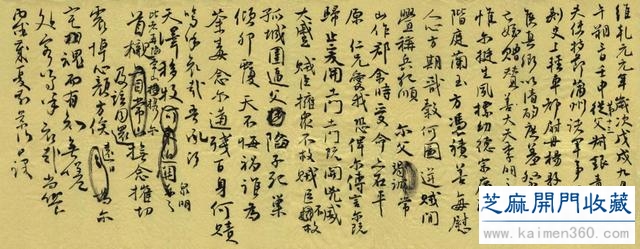 維乾元元年歲次戊戌九月
午朔三日壬申從父銀青
夫使持節蒲州諸軍事
刺史上輕車都尉丹楊縣
侯真卿以清酌庶羞祭
亡姪贈贊善大夫季明
惟爾挺生夙標幼德宗廟
階庭蘭玉方憑積善每慰
人心方期戩穀何圖逆賊閒
釁稱兵犯順爾父竭誠常
山作郡余時受命亦在平
原仁兄愛我恐俾爾傳言爾既
歸止爰開土門土門既開凶威
大蹙賊臣擁衆不救
孤城圍逼父陷子死巢
傾卵覆天不悔禍誰為
荼毒念爾遘殘百身何贖
嗚乎哀哉吾承
天澤移牧河關泉明
比者再陷常山攜爾
首櫬及茲同還撫念摧切
震悼心顏方俟遠日
宅魂而有知無嗟
久客嗚呼哀哉尚饗
芝麻開門收藏
www.kaimen360.com